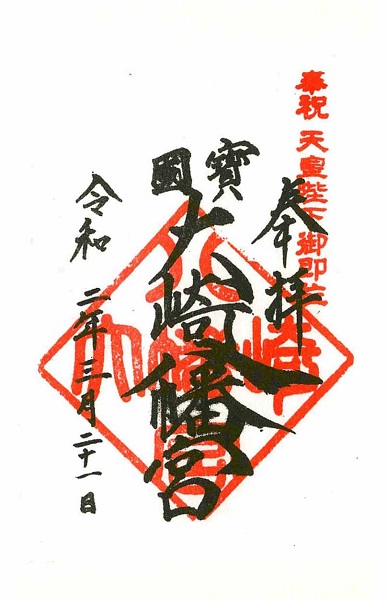 奉祝 天皇陛下御即位
奉拝
國寶
大崎八幡宮
令和二年三月二十一日
大崎八幡宮